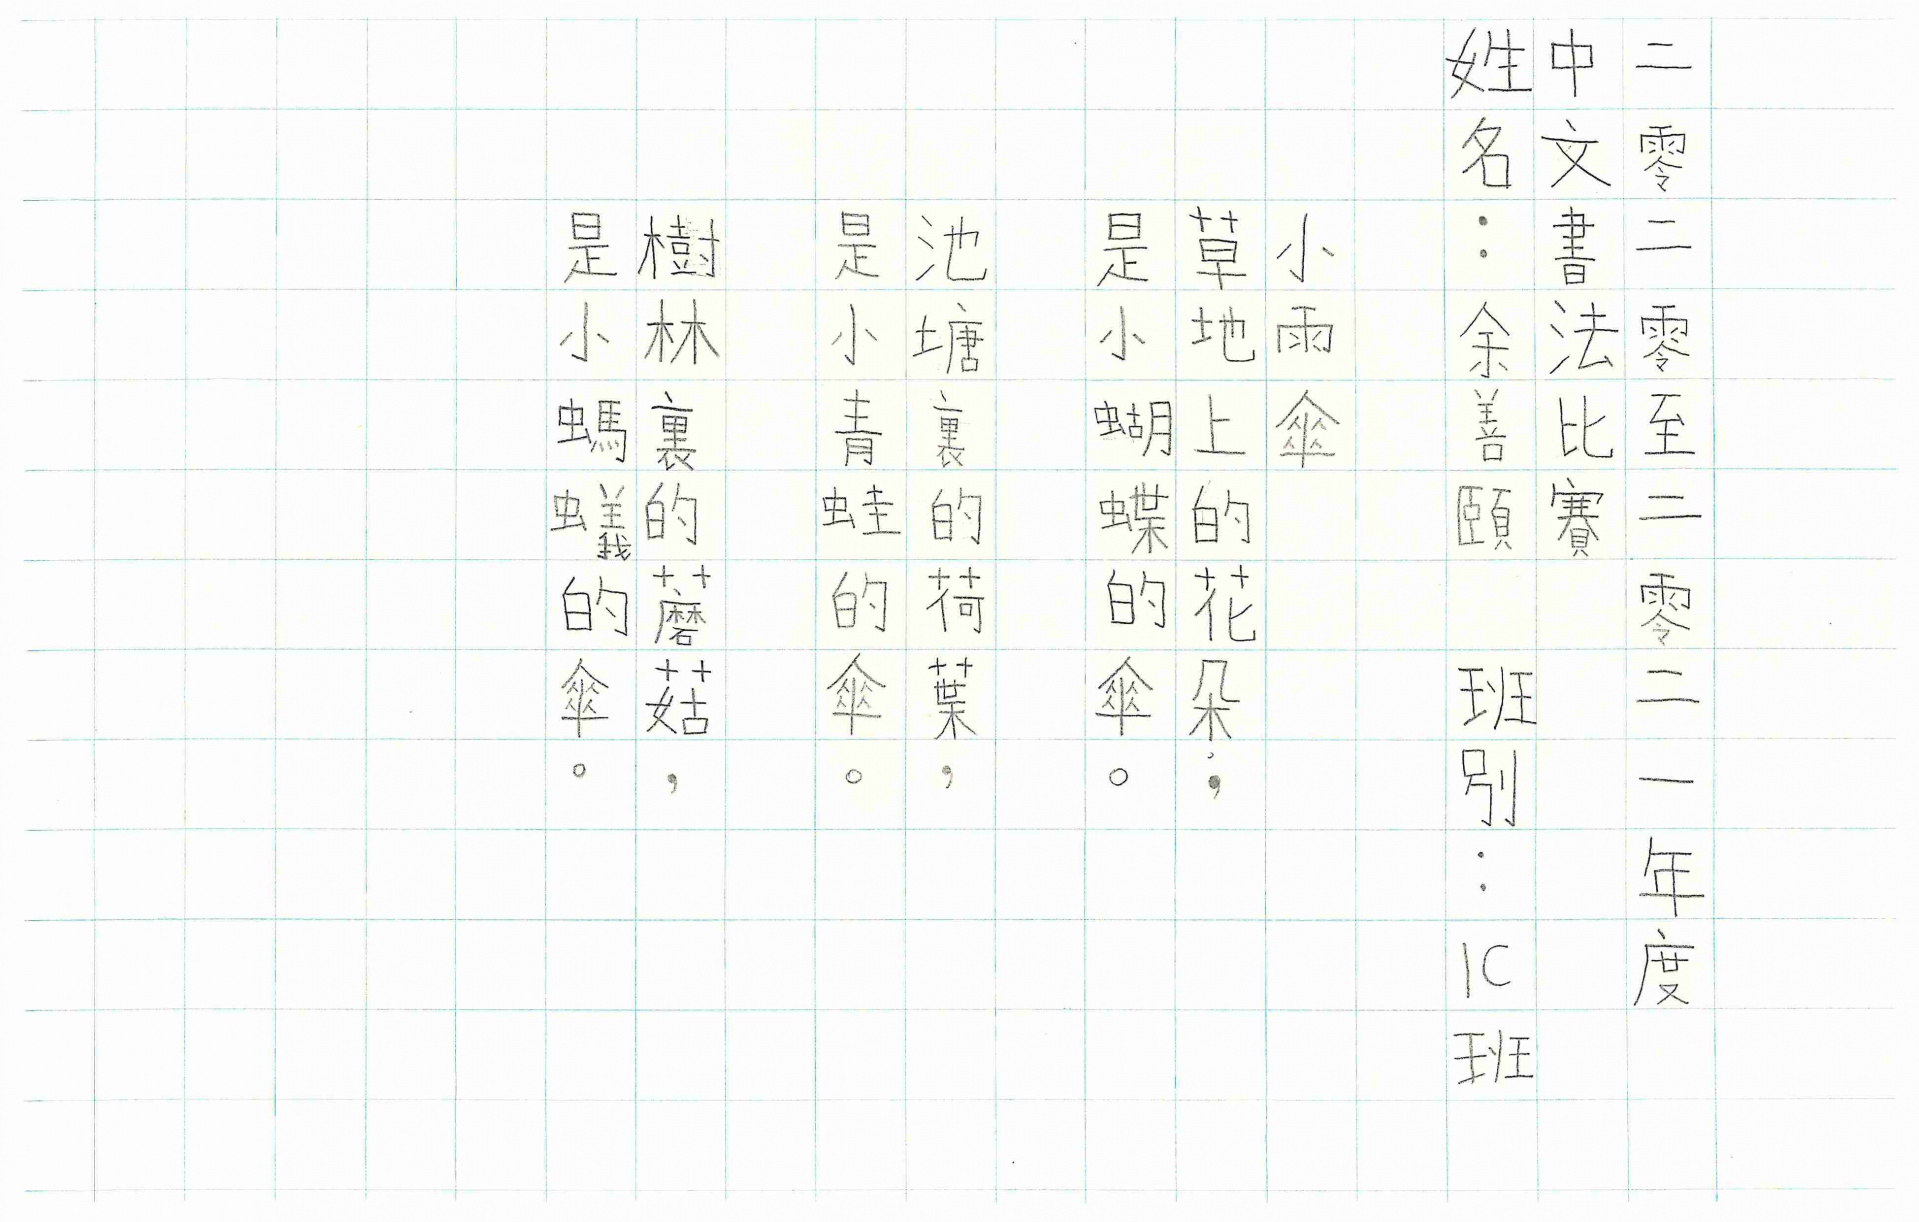 二零二零至二零二一年度
中文書法比賽
姓名：余善頤 班別：1C班
小雨傘
草地上的花朵，
是小蝴蝶的傘。
池塘裏的荷葉，
是小青蛙的傘。
樹林裏的蘑菇，
是小螞蟻的傘。